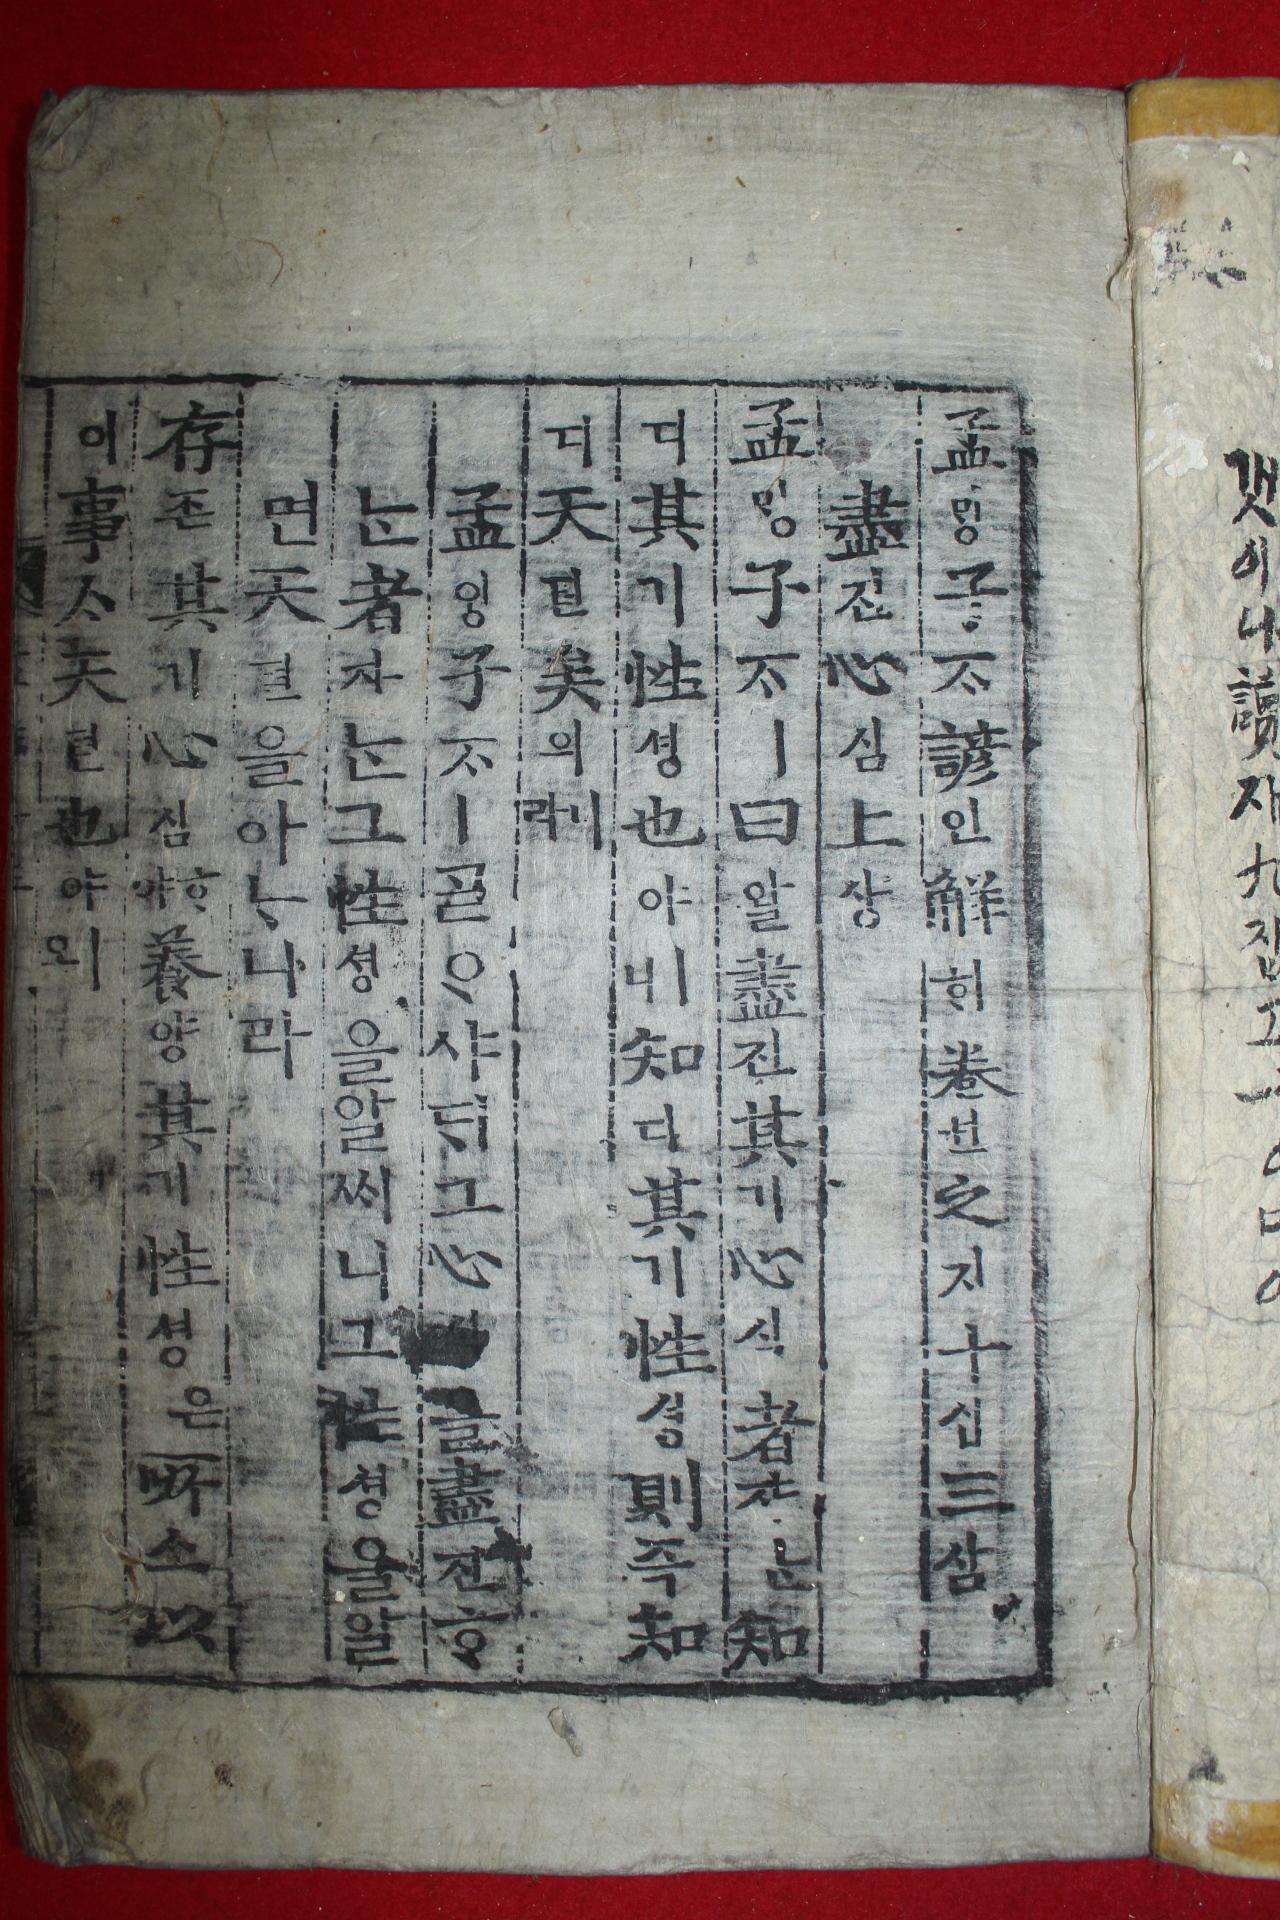 孟밍子ᄌᆞ諺언解ᄒᆡ卷권之지十십三삼
盡진心심上샹
孟밍子ᄌᆞㅣ曰왈盡진其기心심者쟈ᄂᆞᆫ知
디其기性셩也야ㅣ니知디其기性셩則즉知
디天텬矣의니라
孟ᄆᆡᆼ子ᄌᆞㅣᄀᆞᆯᄋᆞ샤ᄃᆡ그心을盡진ᄒᆞ
ᄂᆞᆫ者쟈ᄂᆞᆫ그性셩을알씨니그性셩을알
면天텬을아ᄂᆞ니라
存존其기心심ᄒᆞ야養양其기性셩은所소以
이事ᄉᆞ天텬也야ㅣ오
갯이나讀재九